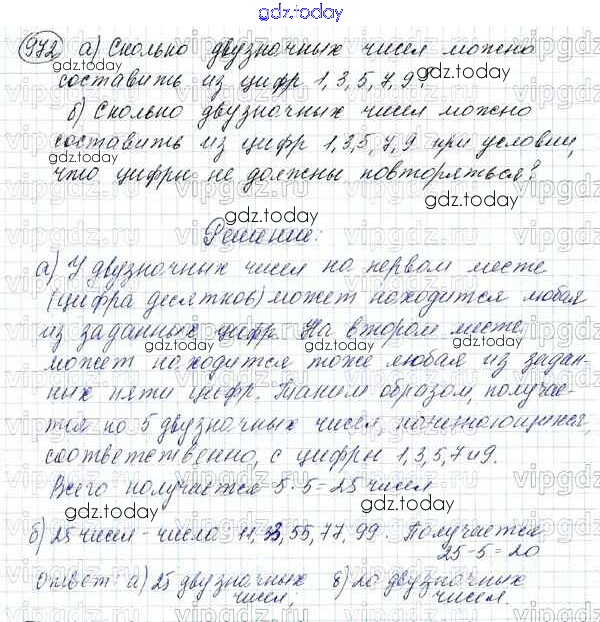 gdz.today
972 а) Сколько двузначных чисел можно
составить из цифр 1, 3, 5, 7, 9?
б) Сколько двузначных чисел можно
составить из цифр 1, 3, 5, 7, 9 при условии,
что цифры не должны повторяться?
Решение:
а) У двузначных чисел на первом месте
(цифра десятков) может находится любая
из заданных цифр. На втором месте
может находится тоже любая из задан-
ных пяти цифр. Таким образом, получае-
тся по 5 двузначных чисел, начинающихся,
соответственно, с цифры 1, 3, 5, 7 и 9.
Всего получается 5·5=25 чисел
б) 25 чисел - числа 11, 33, 55, 77, 99. Получается
25-5=20
Ответ а) 25 двузначных б) 20 двузначных
чисел; чисел.